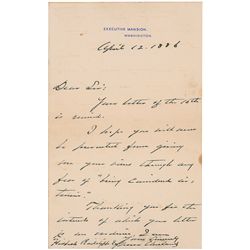 EXECUTIVE MANSION.
WASHINGTON.
April 12. 1886
Dear Sir:
Your letter of the 10th
is received.
I hope you will never
be prevented from giving
me your views through any
fear of "being considered
Thanking you for the
interests of which your letter
is an evidence I am
Yours Sincerely
Grover Cleveland